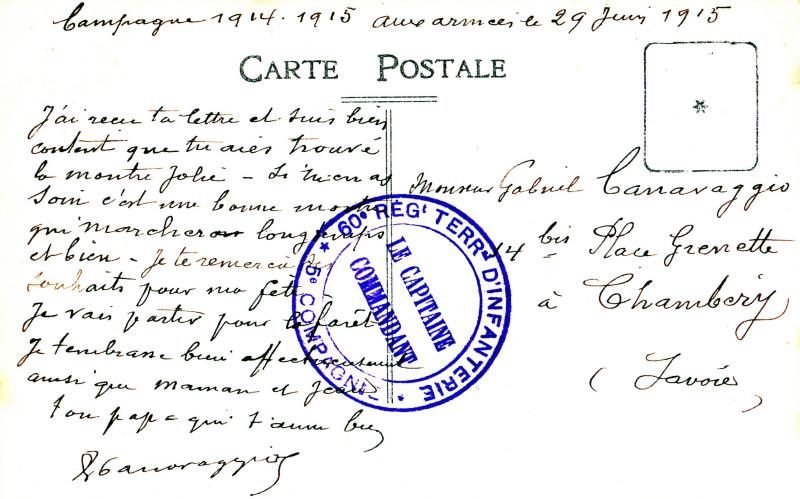 Campagne 1914.1915 aux armées le 29 Juin 1915
CARTE POSTALE
J'ai reçu ta lettre et suis bien
content que tu aies trouvé
la montre jolie - Si tu en as
soin c'est une bonne montre
qui marchera longtemps
et bien - Je te remercie des
souhaits pour ma fête
Je vais partir pour la forêt
Je t'embrasse bien affectueusement
ainsi que maman et Jean
ton papa qui t'aime bien
Canavaggio
Monsieur Gabriel Canavaggio
14 bis Place Grenette
à Chambéry
(Savoie)
60e RÉGt TERRal D'INFANTERIE
* 5e COMPAGNIE *
LE CAPITAINE
COMMANDANT